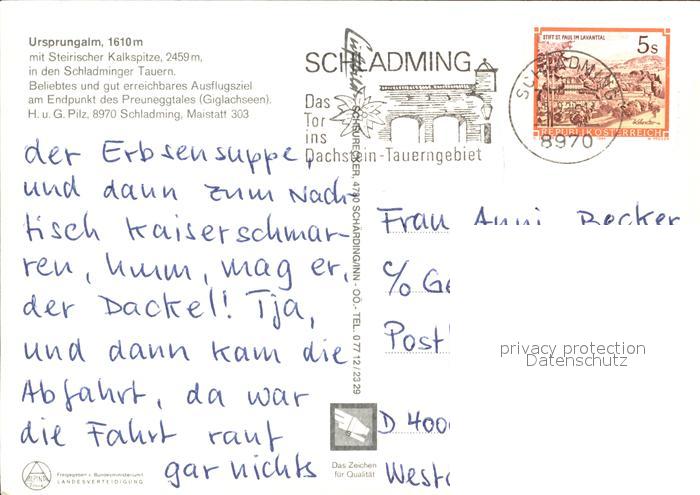 Ursprungalm, 1610 m
mit Steirischer Kalkspitze, 2459 m,
in den Schladminger Tauern.
Beliebtes und gut erreichbares Ausflugsziel
am Endpunkt des Preuneggtales (Giglachseen).
H. u. G. Pilz, 8970 Schladming, Maistatt 303
SCHLADMING
Das
Tor
ins
Dachstein-Tauerngebiet
STIFT ST. PAUL IM LAVANTTAL
5 S
REPUBLIK ÖSTERREICH
SCHLADMING
8970
der Erbsensuppe,
und dann zum Nach-
tisch Kaiserschmar-
ren, hmm, mag er,
der Dackel! Tja,
und dann kam die
Abfahrt, da war
die Fahrt rauf
gar nichts
SCHEURECKER, 4780 SCHÄRDING/INN - OÖ. - TEL. 0 77 12 / 23 29
Frau Anni
c/o
Post
D 400
privacy protection
Datenschutz
Das Zeichen
für Qualität
ALPINA
Freigegeben v. Bundesministerium f.
LANDESVERTEIDIGUNG